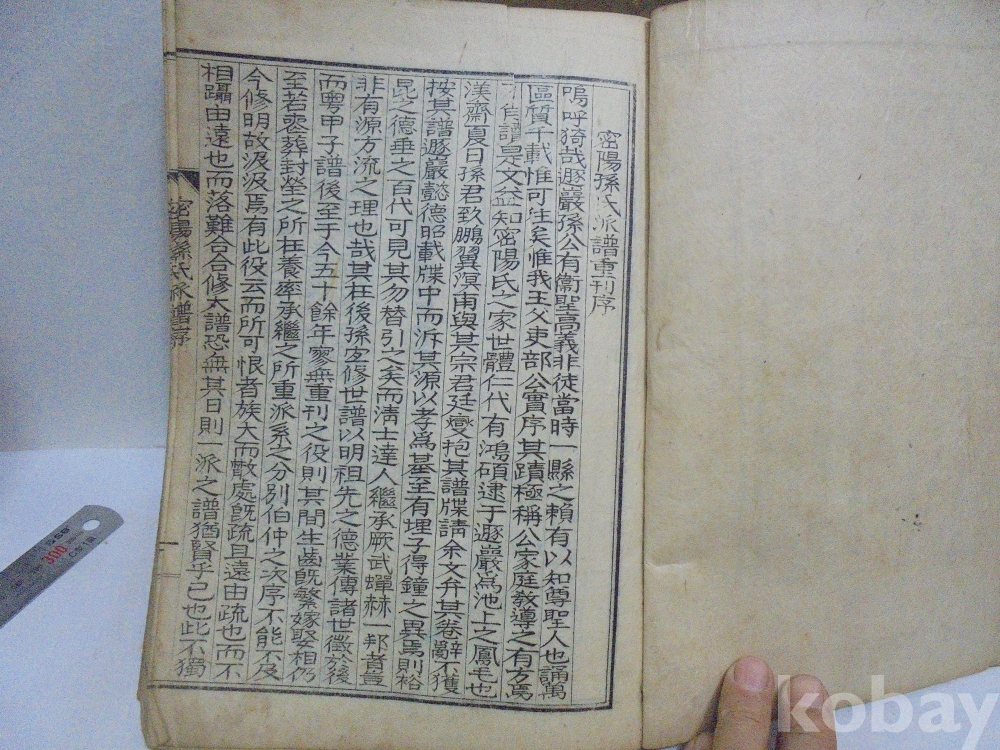 密陽孫氏派譜重刊序
嗚呼猗哉遯巖孫公有衞聖高義非徒當時一縣之賴有以知尊聖人也誦萬
區質千載惟可住矣惟我王父吏部公實序其蹟極稱公家庭敎導之有方焉
有讀是文益知密陽氏之家世體仁代有鴻碩逮于遯巖爲池上之鳳毛也
渼齋夏日孫君致鵬翼溟甫與其宗君廷燮抱其譜牒請余文弁其卷辭不獲
按其譜遯巖懿德昭載牒中而泝其源以孝爲基至有埋子得鐘之異焉則裕
昆之德垂之百代可見其勿替引之矣而淸士達人繼承厥武蟬赫一邦者豈
非有源方流之理也哉其在後孫宜修世譜以明祖先之德業傳諸世徵於後
而粤甲子譜後至于今五十餘年寥無重刊之役則其間生齒旣繁嫁娶相仍
至若喪葬封塋之所在養率承繼之所重派系之分別伯仲之次序不能不及
今修明故汲汲焉有此役云而所可恨者族大而散處旣疏且遠由疏也而不
相躡由遠也而落難合合修大譜恐無其日則一派之譜猶賢乎已也此不獨
密陽孫氏派譜序
300
kobay